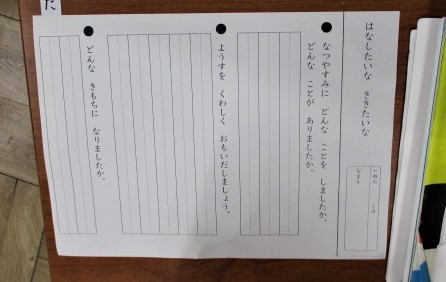 はなしたいな ききたいな
一ねん くみ
なまえ
● なつやすみに どんな ことを しましたか。
どんな ことが ありましたか。
● ようすを くわしく おもいだしましょう。
● どんな きもちに なりましたか。
た